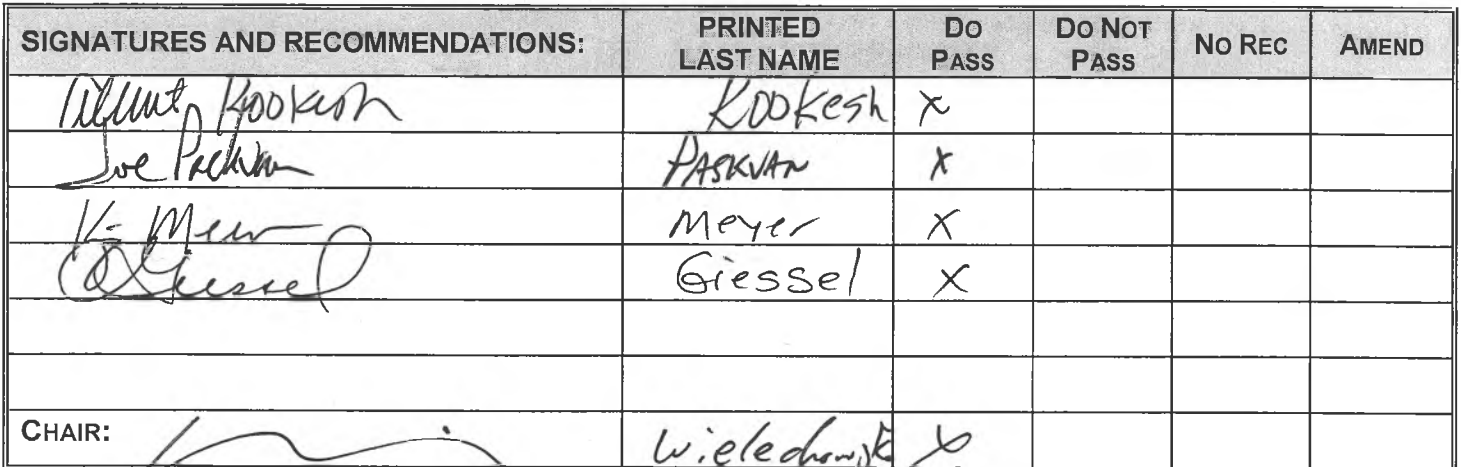 SIGNATURES AND RECOMMENDATIONS: PRINTED LAST NAME DO PASS DO NOT PASS NO REC AMEND
Kookesh Kookesh X
Joe Paskvan PASKVAN X
K Meyer Meyer X
Giessel Giessel X
CHAIR: Wielechowski X